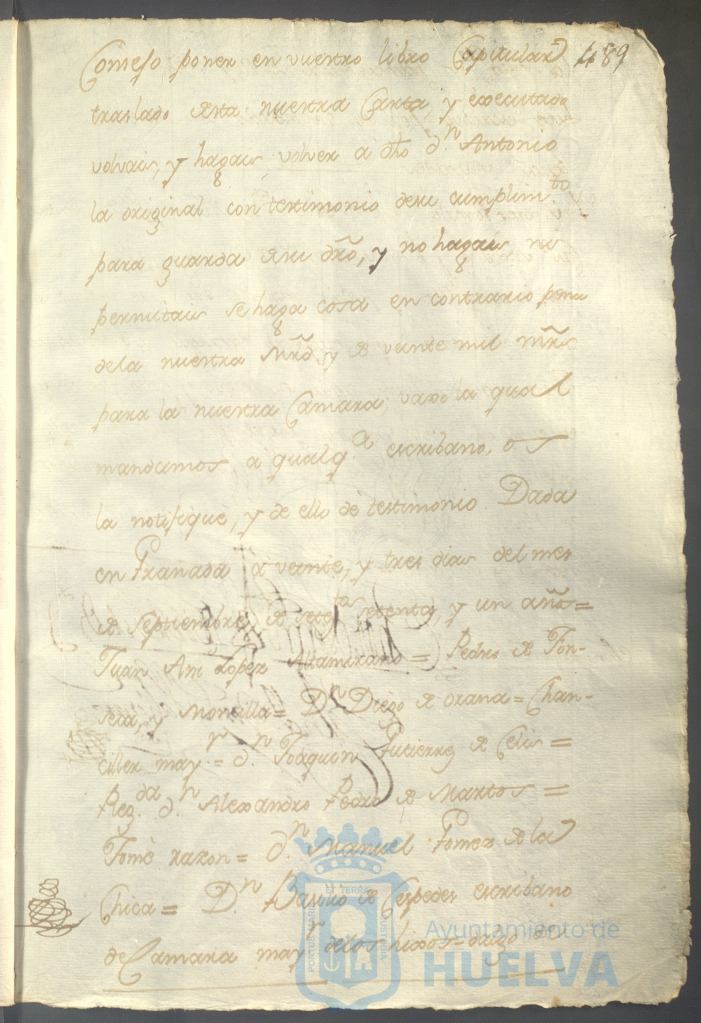 Consejo poner en vuestro libro Capitular 489
traslado desta nuestra Carta, y executado
volvais, y hagais volver a dho d.n Antonio
la original con testimonio de su cumplim.to
para guarda de su dro, y no hagais ni
permitais se haga cosa en contrario pena
de la nuestra Mrd, y de veinte mil mrs
para la nuestra Camara, vaxo la qual
mandamos a qualq.a escribano, os
la notifique, y de ello de testimonio. Dada
en Granada a veinte, y tres dias del mes
de Septiembre de set.tos setenta, y un años=
Juan Ant Lopez Altamirano= Pedro de Fon-
seca, y Montilla= D.n Diego de orana= Chan-
ciller may.r= d.n Joaquin Gutierrez de Celis=
Reg.da d.n Alexandro Pedro de Martos=
Tomè razon= d.n Manuel Gomez de la
Chica= D.n Basilio de Cespedes escribano
de Camara may.r de los hixos-dalgo de
Ayuntamiento de
HUELVA